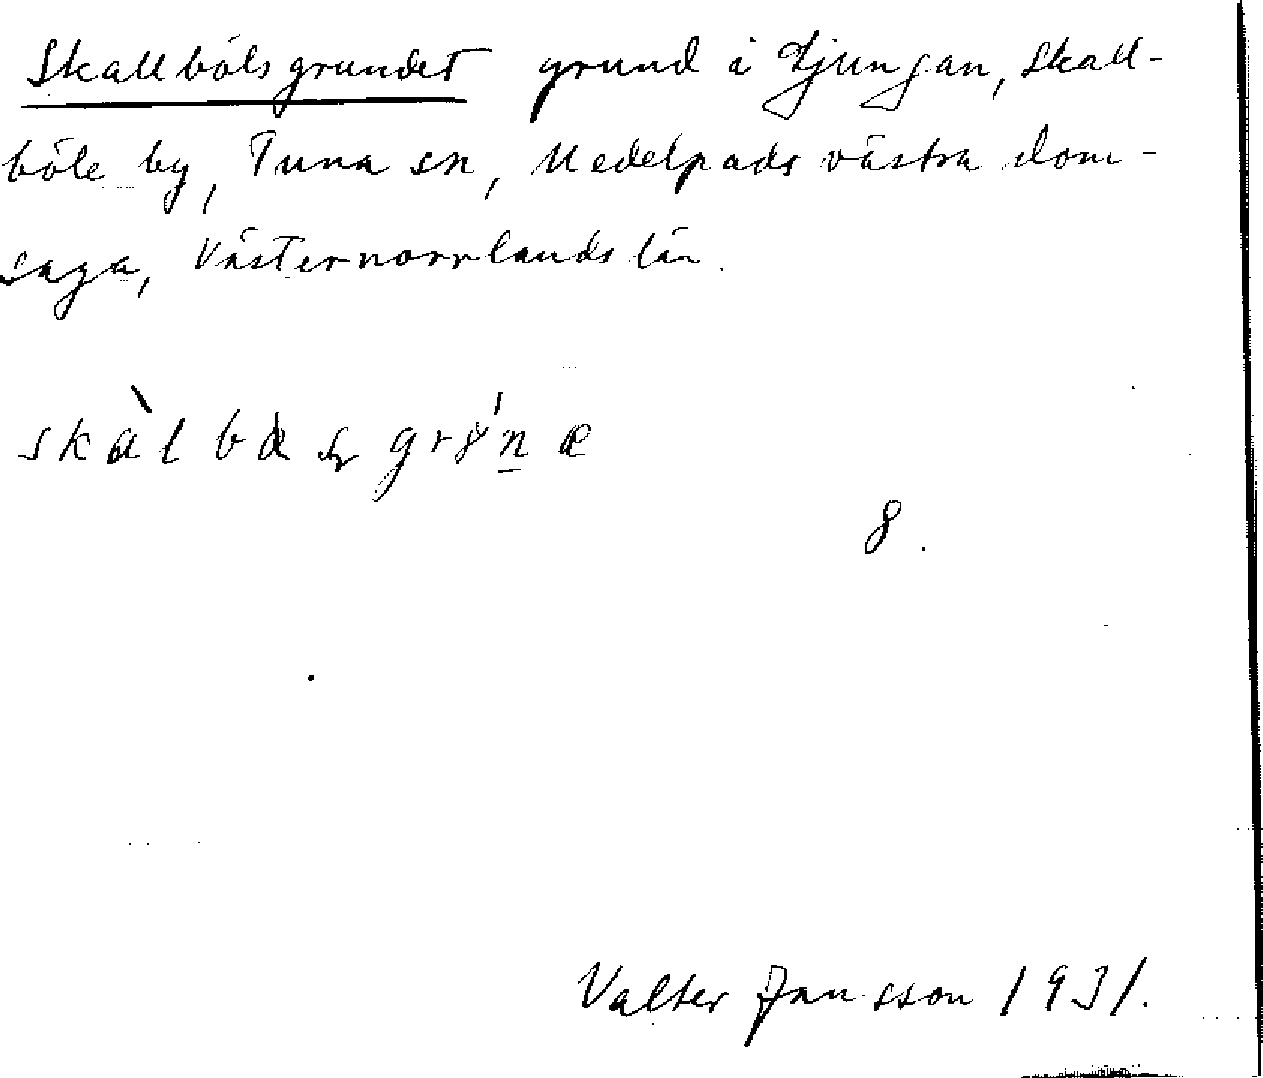 Skallbölsgrundet grund i Ljungan, Skall-
böle by, Tuna sn, Medelpads västra dom-
saga, Västernorrlands län.
8.
Valter Jansson 1931.